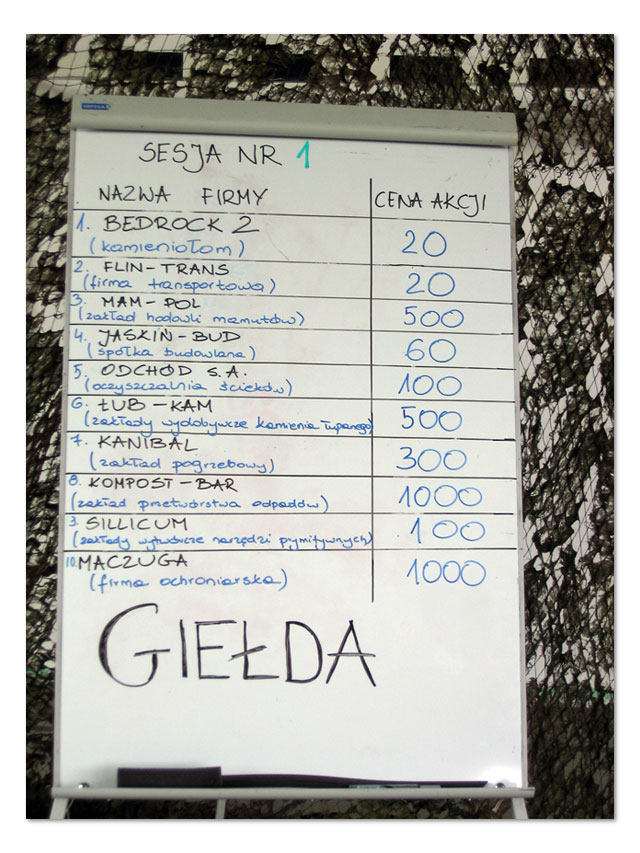 SESJA NR 1
NAZWA FIRMY CENA AKCJI
1. BEDROCK 2
(kamieniołom) 20
2. FLIN-TRANS
(firma transportowa) 20
3. MAM-POL
(zakład hodowli mamutów) 500
4. JASKIN-BUD
(spółka budowlana) 60
5. ODCHÓD S.A.
(oczyszczalnia ścieków) 100
6. ŁUB-KAM
(zakłady wydobywcze kamienia łupanego) 500
7. KANIBAL
(zakład pogrzebowy) 300
8. KOMPOST-BAR
(zakład przetwórstwa odpadów) 1000
9. SILLICUM
(zakłady wytwórcze narzędzi prymitywnych) 100
10. MACZUGA
(firma ochroniarska) 1000
GIEŁDA